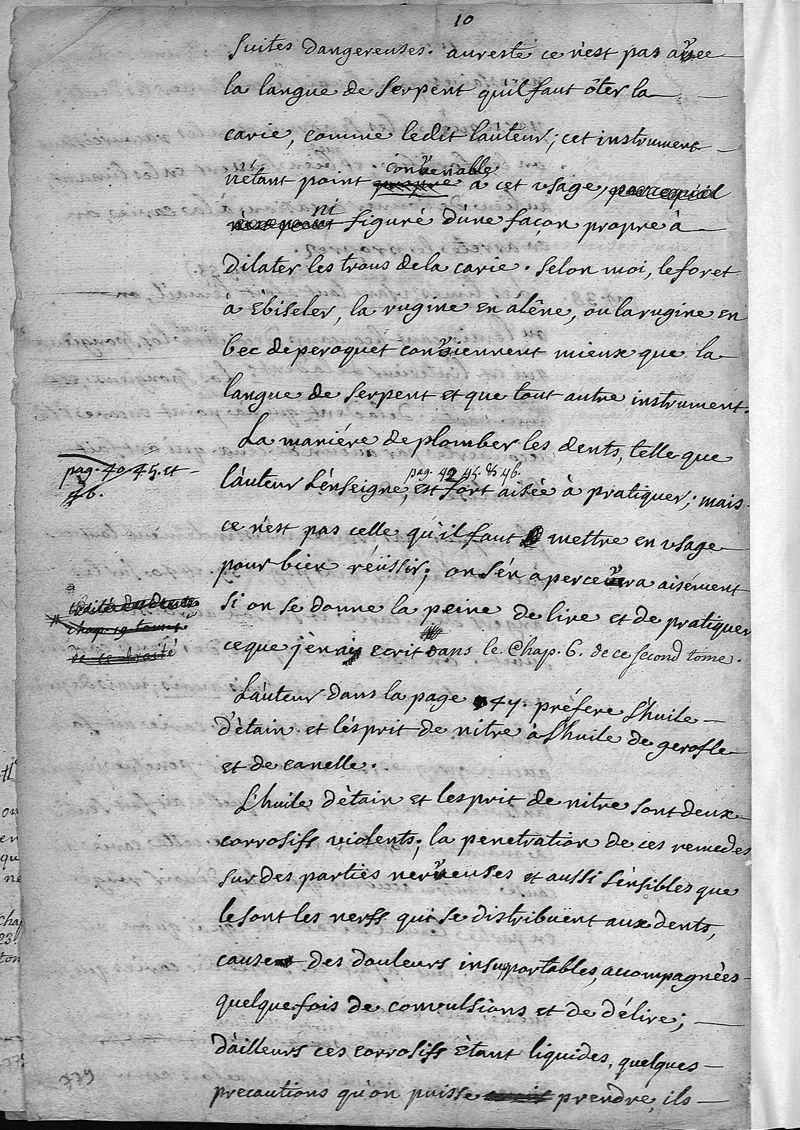 10
suites dangereuses. aureste ce n'est pas avec
la langue de serpent qu'il faut ôter la
carie, comme le dit l'auteur; cet instrument
n'étant point propre convenable à cet usage, parcequil
n'est point ni figuré d'une façon propre à
dilater les trous dela carie. selon moi, le foret
a Ebiseler, la rugine en alêne, ou la rugine en
bec de peroquet conviennent mieux que la
langue de serpent et que tout autre instrument.
La maniére de plomber les dents, telle que
pag. 40 45. et
46.
l'auteur l'enseigne, pag. 42 45. & 46. est fort aisée à pratiquer; mais
ce n'est pas celle qu'il faut mettre en usage
pour bien réüssir; on s'en apercevra aisément
si on se donne la peine de lire et de pratiquer
traité des dents
chap. 19 tome 1.
de ce traité
ceque j'en ay ecrit dans le Chap. 6. de ce second tome.
L'auteur dans la page 47. préfere l'huile
d'étain et l'ésprit de nitre à l'huile de gerofle
et de canelle.
L'huile d'étain et l'esprit de nitre sont deux
corrosifs violents; la penetration de ces remedes
sur des parties nerveuses et aussi sensibles que
le sont les nerfs qui se distribuënt aux dents,
cause des douleurs insuportables, accompagnées
quelque fois de convulsions et de délire;
d'ailleurs ces corrosifs étant liquides, quelques
precautions qu'on puisse prendre, ils
779